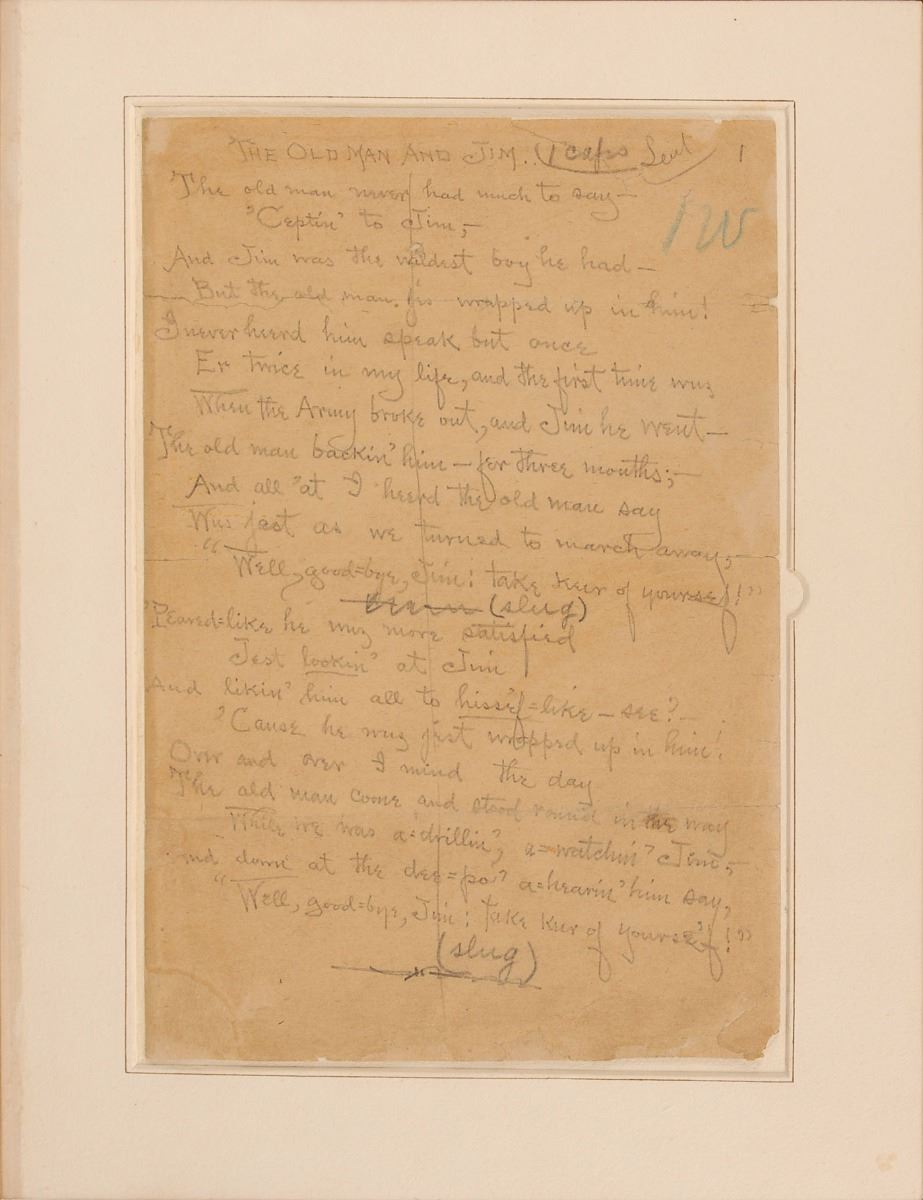 THE OLD MAN AND JIM. (1 caps Lead 1
The old man never had much to say—
'Ceptin' to Jim,—
And Jim was the wildest boy he had—
But the old man jis wrapped up in him!
I never heerd him speak but once
Er twice in my life, and the first time wuz
When the Army broke out, and Jim he went—
The old man backin' him—fer three months;—
And all 'at I heerd the old man say
Wus jest as we turned to march away,—
"Well, good=bye, Jim: take keer of yourse'f!"
(slug)
'Peared=like he wuz more satisfied
Jest lookin' at Jim
And likin' him all to hisse'f=like—see?—
'Cause he wuz jest wrapped up in him!
Over and over I mind the day
The old man come and stood round in the way
While we was a=drillin', a=watchin' Jim;—
And down at the dee=po' a=hearin' him say,
"Well, good=bye, Jim: take keer of yourse'f!"
(slug)